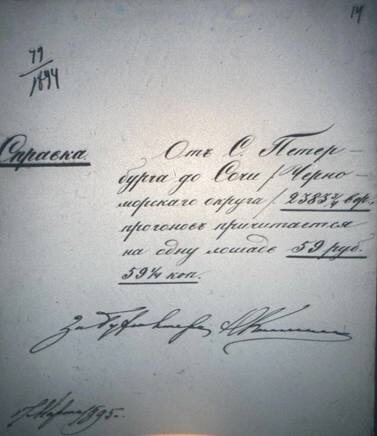 14
79
1894
Справка.
Отъ С. Петер-
бурга до Сочи /Черно-
морскаго округа/ 2383¾ вер.
прогоновъ причитается
на одну лошадь 59 руб.
59¼ коп.
За Бухгалтера
Марта 1895.